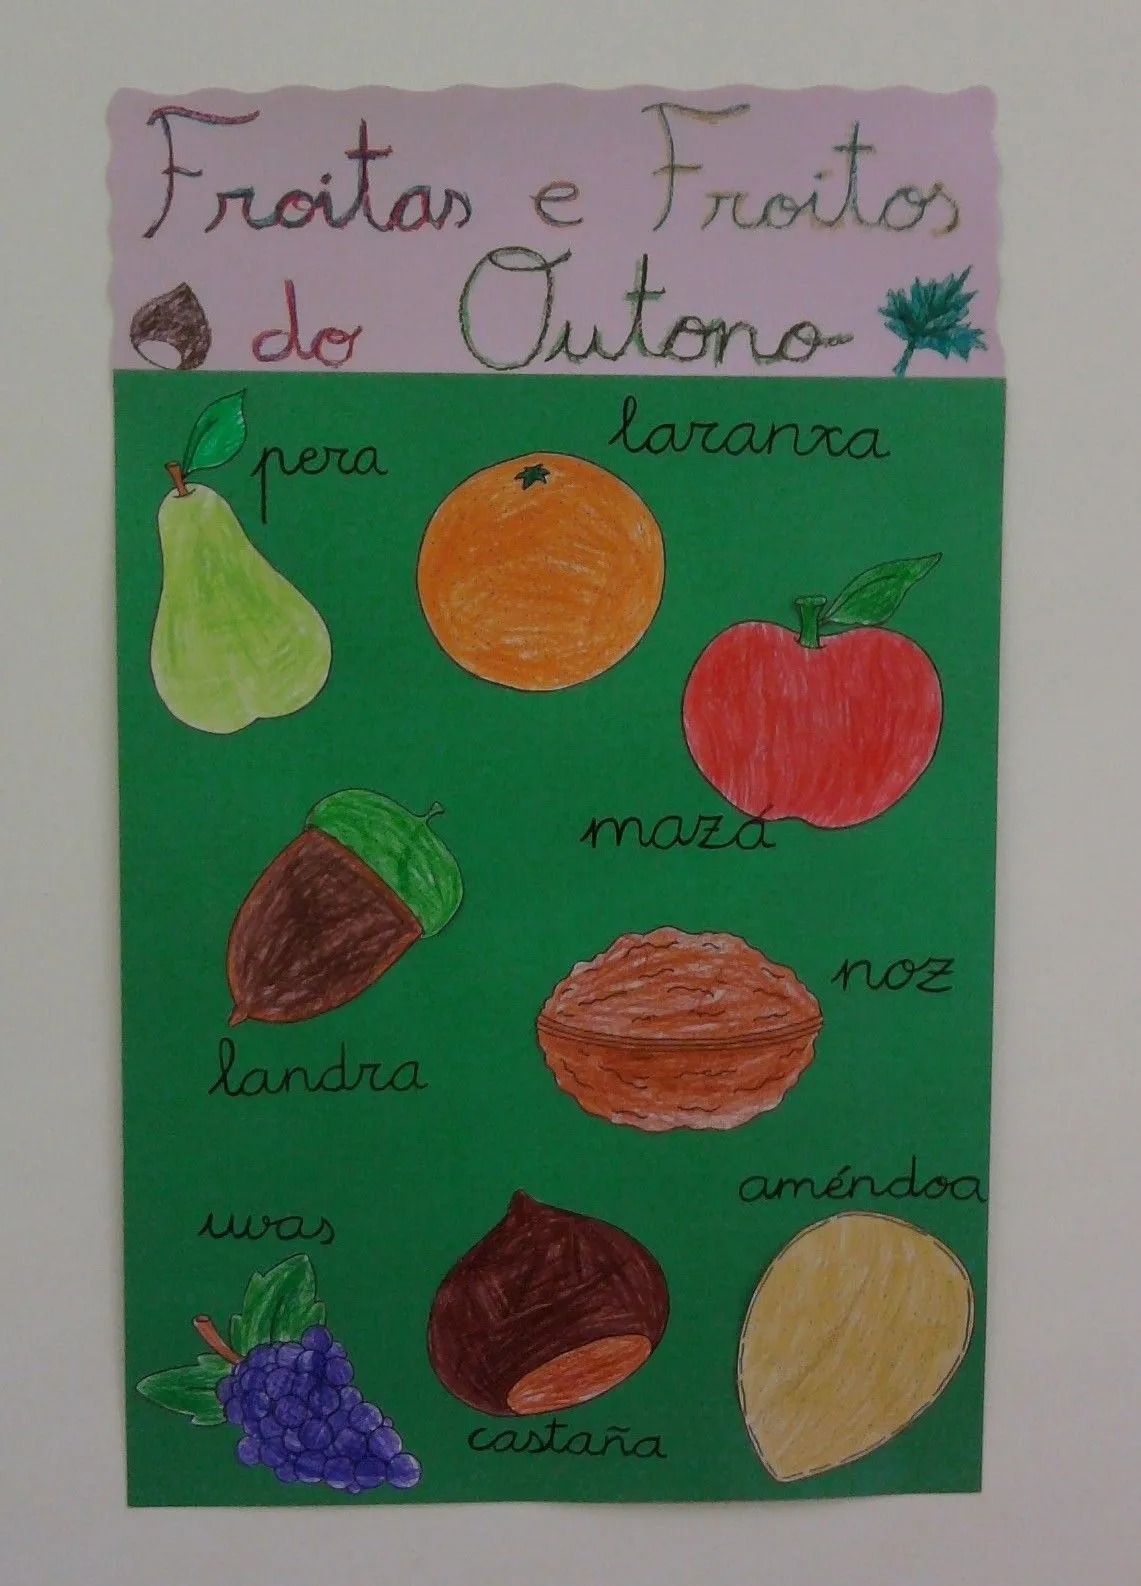 Froitas e Froitos
do Outono
pera
laranxa
mazá
landra
noz
uvas
castaña
améndoa